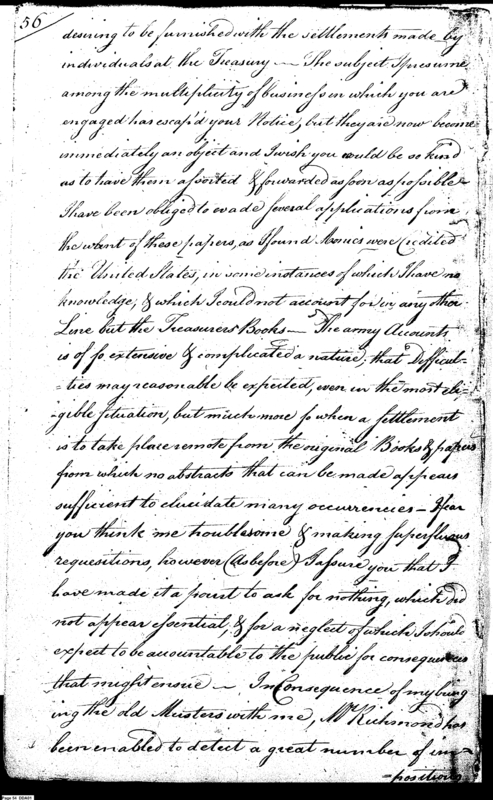 56
desiring to be furnished with the settlements made by
individuals at the Treasury — The subject I presume
among the multiplicity of business in which you are
engaged has escap'd your Notice, but they are now become
immediately an object and I wish you would be so kind
as to have them assorted & forwarded as soon as possible
I have been obliged to evade several applications from
the want of these papers, as I found Monies were Credited
the United States, in some instances of which I have no
knowledge, & which I could not account for in any other
Line but the Treasurers Books — The army Accounts
is of so extensive & complicated a nature, that Difficul-
-ties may reasonable be expected, even in the most eli-
-gible situation, but much more so when a settlement
is to take place remote from the original Books & papers
from which no abstracts that can be made appears
sufficient to elucidate many occurrencies — I fear
you think me troublesome & making superfluous
requesitions, however (As before) I assure you that I
have made it a point to ask for nothing, which did
not appear essential, & for a neglect of which I should
expect to be accountable to the public for consequences
that might ensue — In Consequence of my bring
ing the old Musters with me, Mr. Richmond has
been enabled to detect a great number of im-
-positions
Page 56